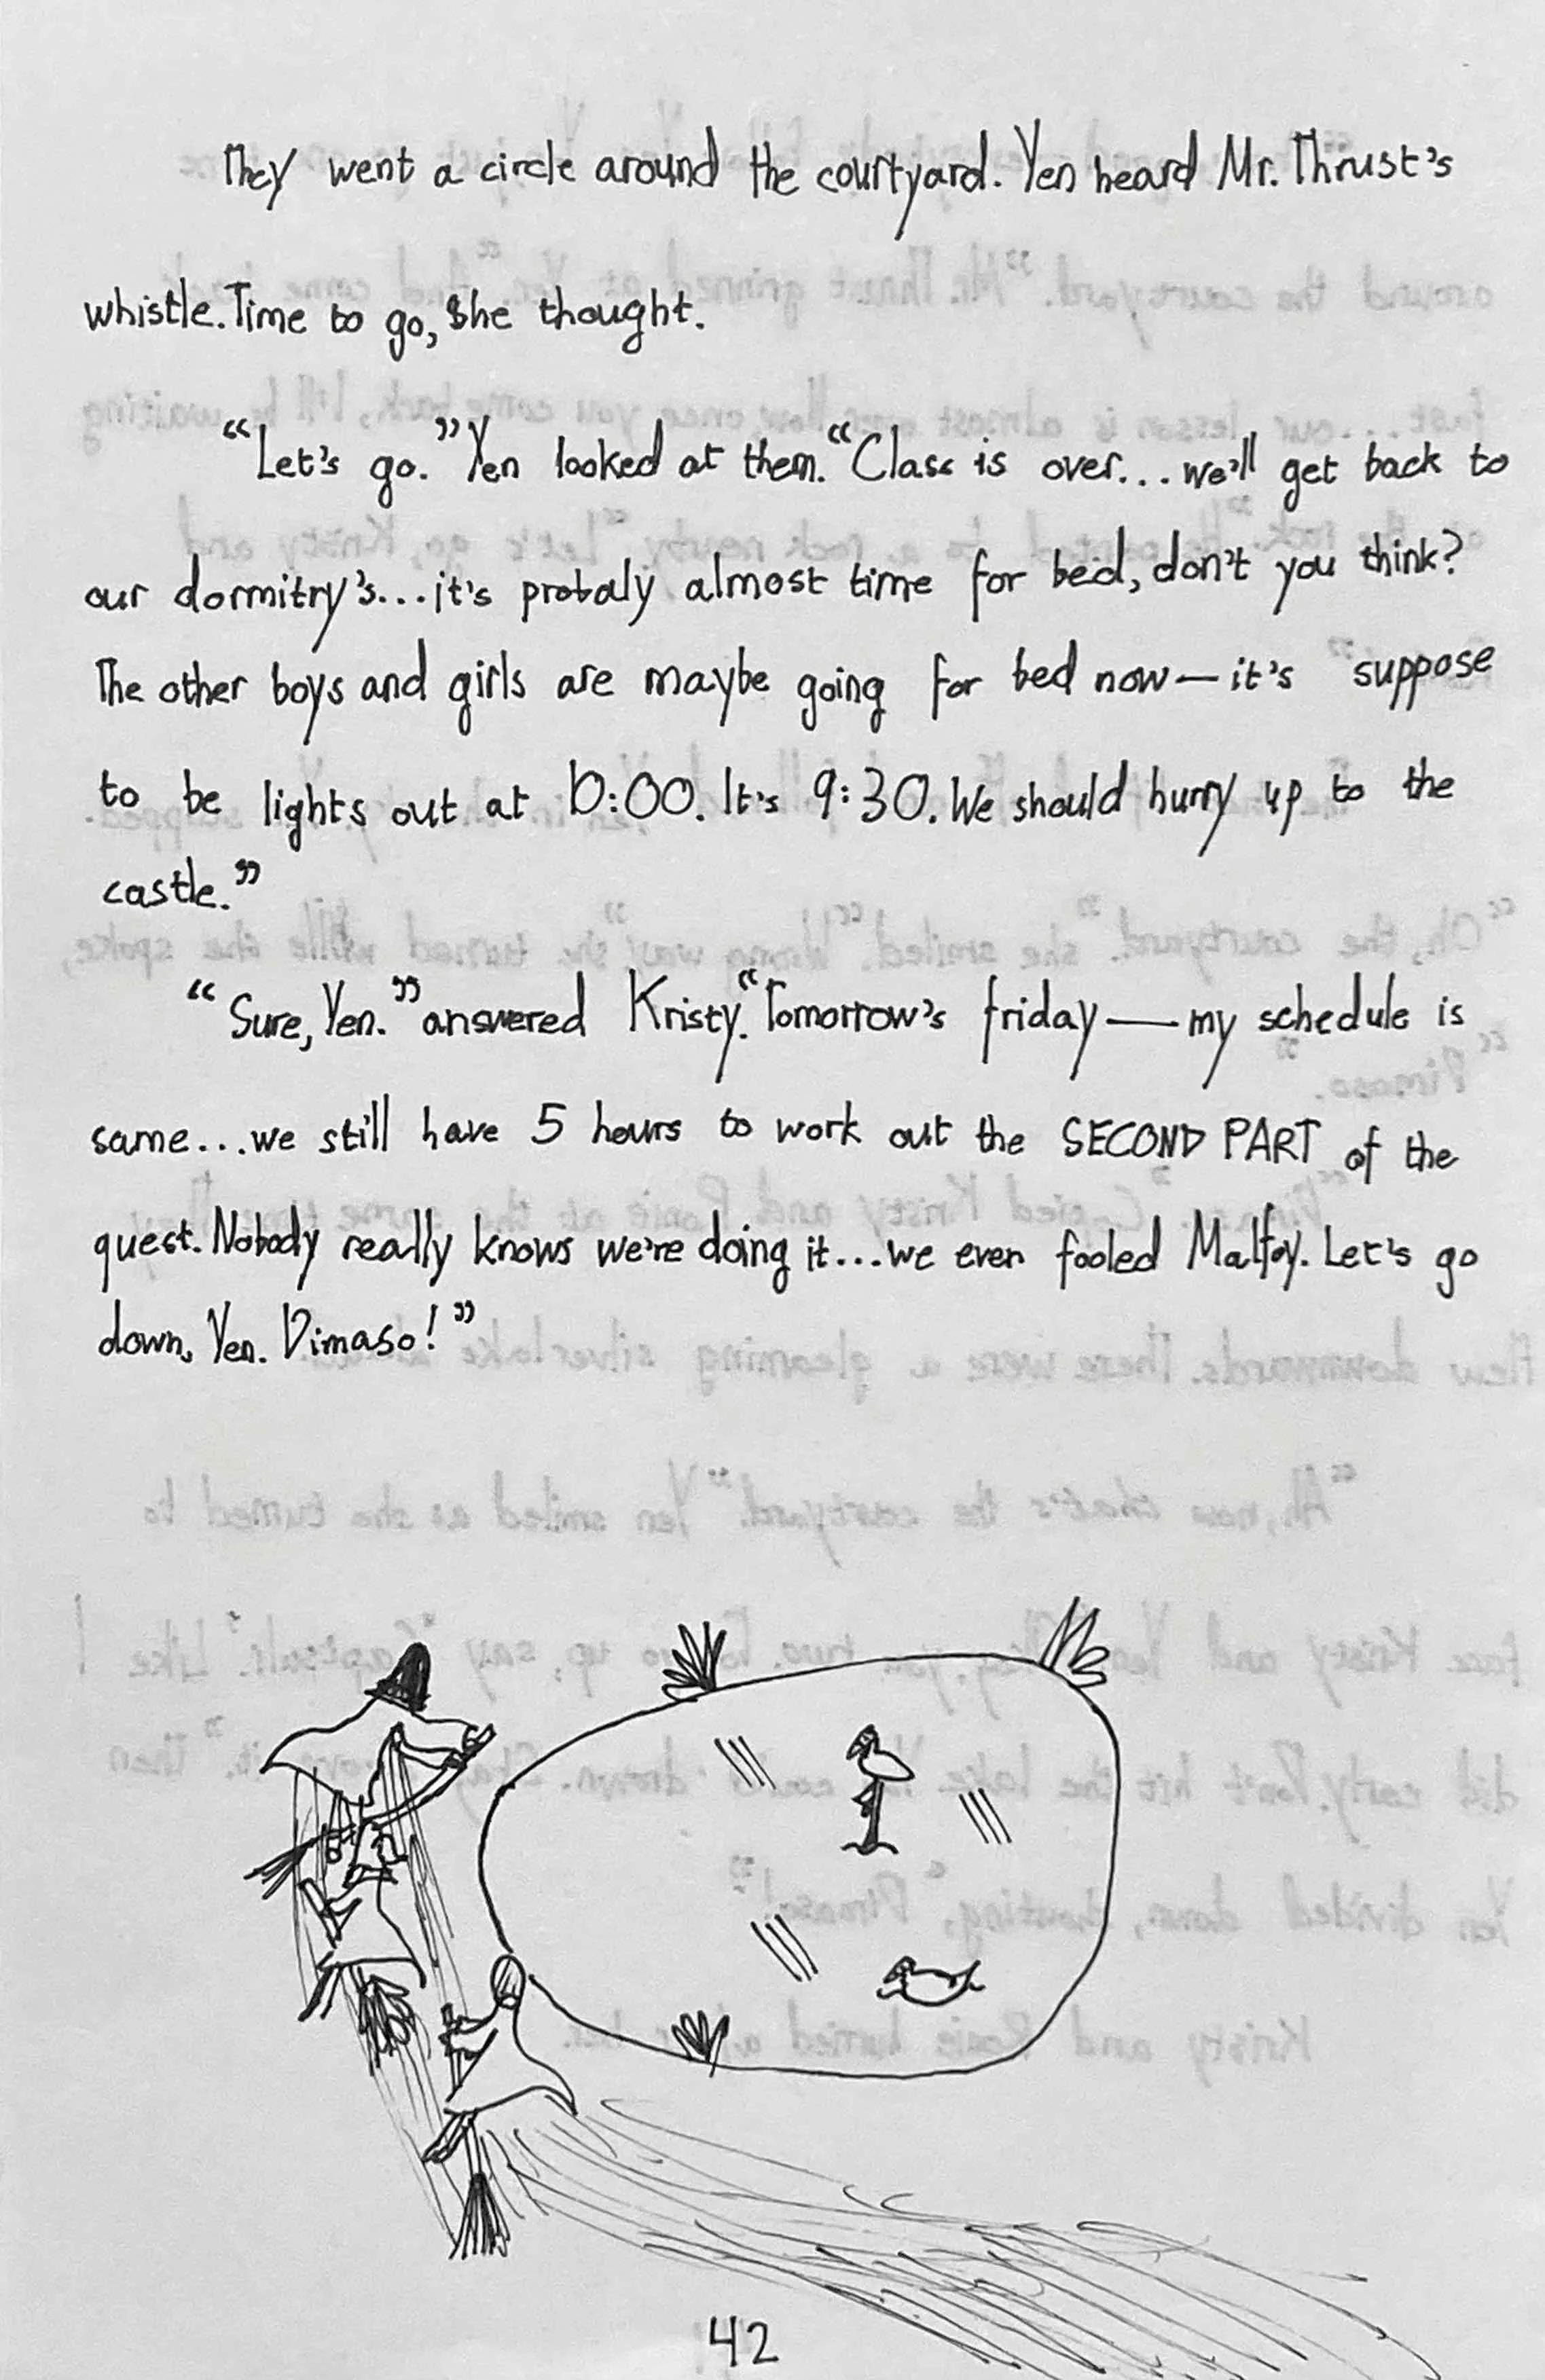 They went a circle around the courtyard. Yen heard Mr. Thrust's
whistle. Time to go, she thought.
“Let's go.” Yen looked at them. “Class is over... we'll get back to
our dormitry's...it's probaly almost time for bed, don't you think?
The other boys and girls are maybe going for bed now—it's suppose
to be lights out at 10:00. It's 9:30. We should hurry up to the
castle.”
“Sure, Yen.” answered Kristy. “Tomorrow's friday—my schedule is
same...we still have 5 hours to work out the SECOND PART of the
quest. Nobody really knows we're doing it...we even fooled Malfoy. Let's go
down, Yen. Dimaso!”
42